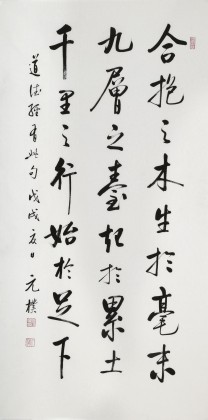 合抱之木生於毫末
九層之臺起於累土
千里之行始於足下
道德經有此句戊戌夏日元樸